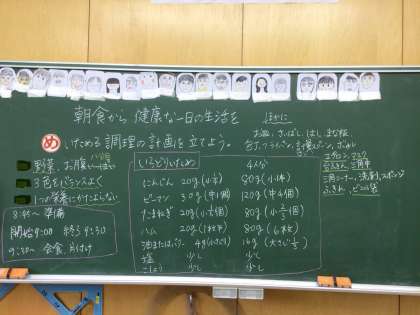 朝食から健康な一日の生活を
め いためる調理の計画を立てよう。
野菜、お腹いっぱい
3色をバランスよく
1つの栄養にかたよらない
8:45〜 準備
開始9:00 終り9:30
9:30〜 会食、片付け
いろどりいため 4人分
にんじん 20g(小 80g(小1本)
ピーマン 30g(中1個) 120g(中4個)
たまねぎ 20g(小 80g(小
ハム 20g(1枚半) 80g(6枚)
油またはバター 4g(小さじ1) 16g(大さじ
塩 少し 少し
こしょう 少し 少し
ほかに
お皿、さいばし、はし、まな板
包丁、フライパン、計量スプーン、ボール
エプロン、マスク
三角巾
三角コーナー、洗剤、スポンジ
ふきん、ビニール袋